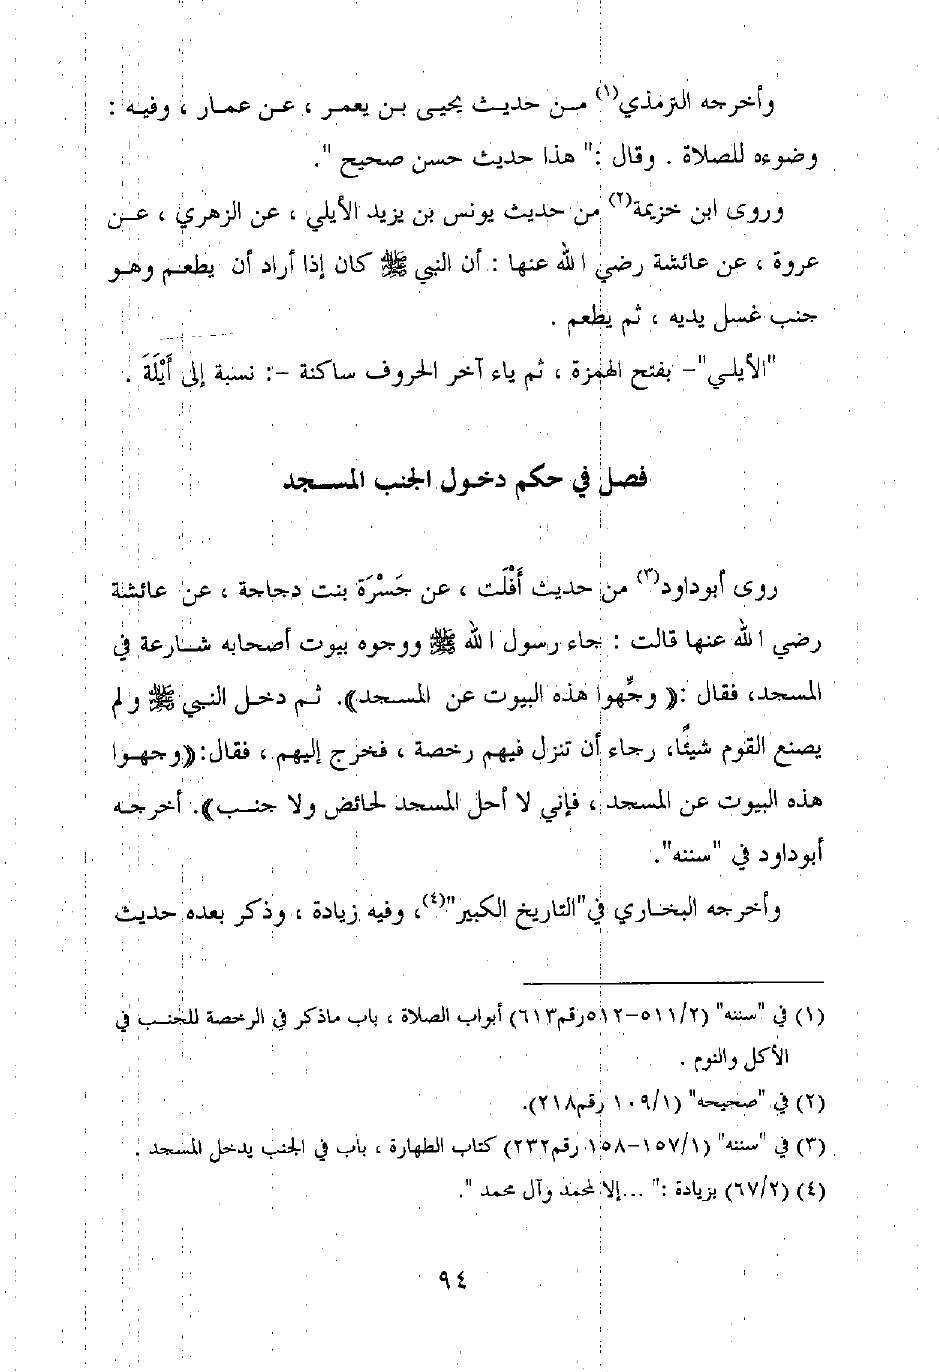 وأخرجه الترمذي(١) من حديث يحيى بن يعمر ، عن عمار ، وفيه :
وضوءه للصلاة . وقال :" هذا حديث حسن صحيح ".
وروى ابن خزيمة(٢) من حديث يونس بن يزيد الأيلي ، عن الزهري ، عن
عروة ، عن عائشة رضي الله عنها : أن النبي ﷺ كان إذا أراد أن يطعم وهو
جنب غسل يديه ، ثم يطعم .
"الأيلي"- بفتح الهمزة ، ثم ياء آخر الحروف ساكنة -: نسبة إلى أَيْلَةَ .
فصل في حكم دخول الجنب المسجد
روى أبوداود(٣) من حديث أَفْلَت ، عن جَسْرَة بنت دجاجة ، عن عائشة
رضي الله عنها قالت : جاء رسول الله ﷺ ووجوه بيوت أصحابه شارعة في
المسجد، فقال :(( وجِّهوا هذه البيوت عن المسجد)). ثم دخل النبي ﷺ ولم
يصنع القوم شيئًا، رجاء أن تنزل فيهم رخصة ، فخرج إليهم ، فقال:((وجهوا
هذه البيوت عن المسجد ، فإني لا أحل المسجد لحائض ولا جنب)). أخرجه
أبوداود في "سننه".
وأخرجه البخاري في"التاريخ الكبير"(٤)، وفيه زيادة ، وذكر بعده حديث
(١) في "سننه" (٥١١/٢-٥١٢رقم٦١٣) أبواب الصلاة ، باب ماذكر في الرخصة للجنب في
الأكل والنوم .
(٢) في "صحيحه" (١٠٩/١ رقم٢١٨).
(٣) في "سننه" (١٥٧/١-١٥٨ رقم٢٣٢) كتاب الطهارة ، باب في الجنب يدخل المسجد .
(٤) (٦٧/٢) بزيادة :" ...إلا لمحمد وآل محمد ".
٩٤